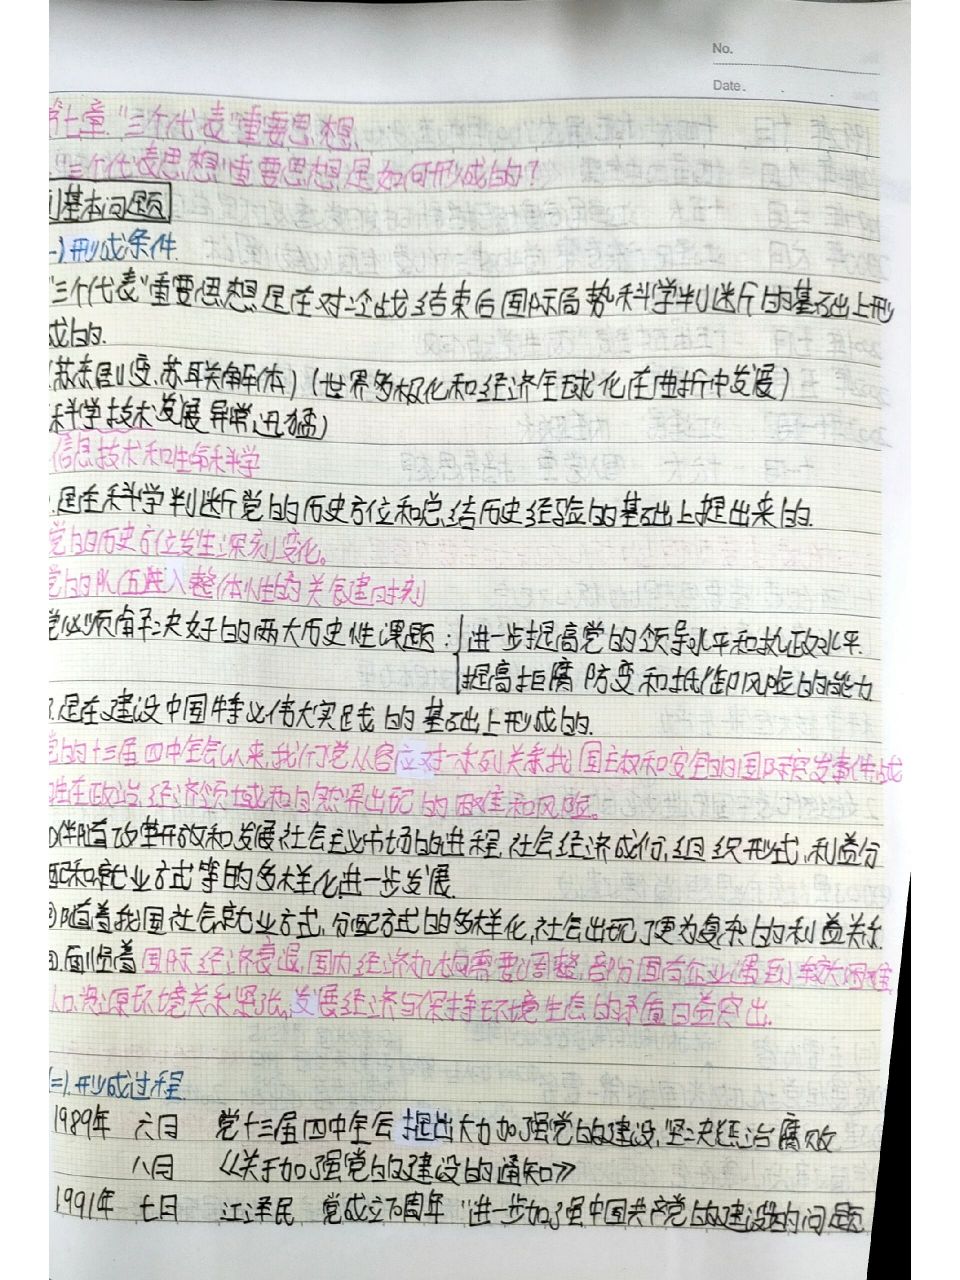 No.
Date.
第七章."三个代表"重要思想.
"三个代表思想"重要思想是如何形成的?
基本问题
一)形成条件.
"三个代表"重要思想是在对冷战结束后国际局势科学判断的基础上形
成的.
(苏东剧变,苏联解体)(世界多极化和经济全球化在曲折中发展)
科学技术发展异常迅猛)
信息技术和生命科学
.是在科学判断党的历史方位和总结历史经验的基础上提出来的.
党的历史方位发生深刻变化。
党的队伍进入整体性的关键时刻
党必须解决好的两大历史性课题:{进一步提高党的领导水平和执政水平.
提高拒腐防变和抵御风险的能力
3.是在建设中国特义伟大实践的基础上形成的.
党的十三届四中全会以来,我们党从容应对一系列关系我国主权和安全的国际突发事件,战
胜在政治,经济领域和自然界出现的困难和风险。
①伴随改革开放和发展社会主义市场的进程,社会经济成份,组织形式,利益分
配和就业方式等的多样化进一步发展.
②随着我国社会就业方式,分配方式的多样化,社会出现了更为复杂的利益关系.
③.面临着国际经济衰退,国内经济九大向需要调整,部分国有企业遇到较大困难
人口资源环境关系紧张,发展经济与保持环境生态的矛盾日益突出.
(二).形成过程
1989年 六月 党十三届四中全会 提出大力加强党的建设,坚决惩治腐败
八月 《关于加强党的建设的通知》
1991年 七月 江泽民 党成立70周年 "进一步加强中国共产党的建设的问题